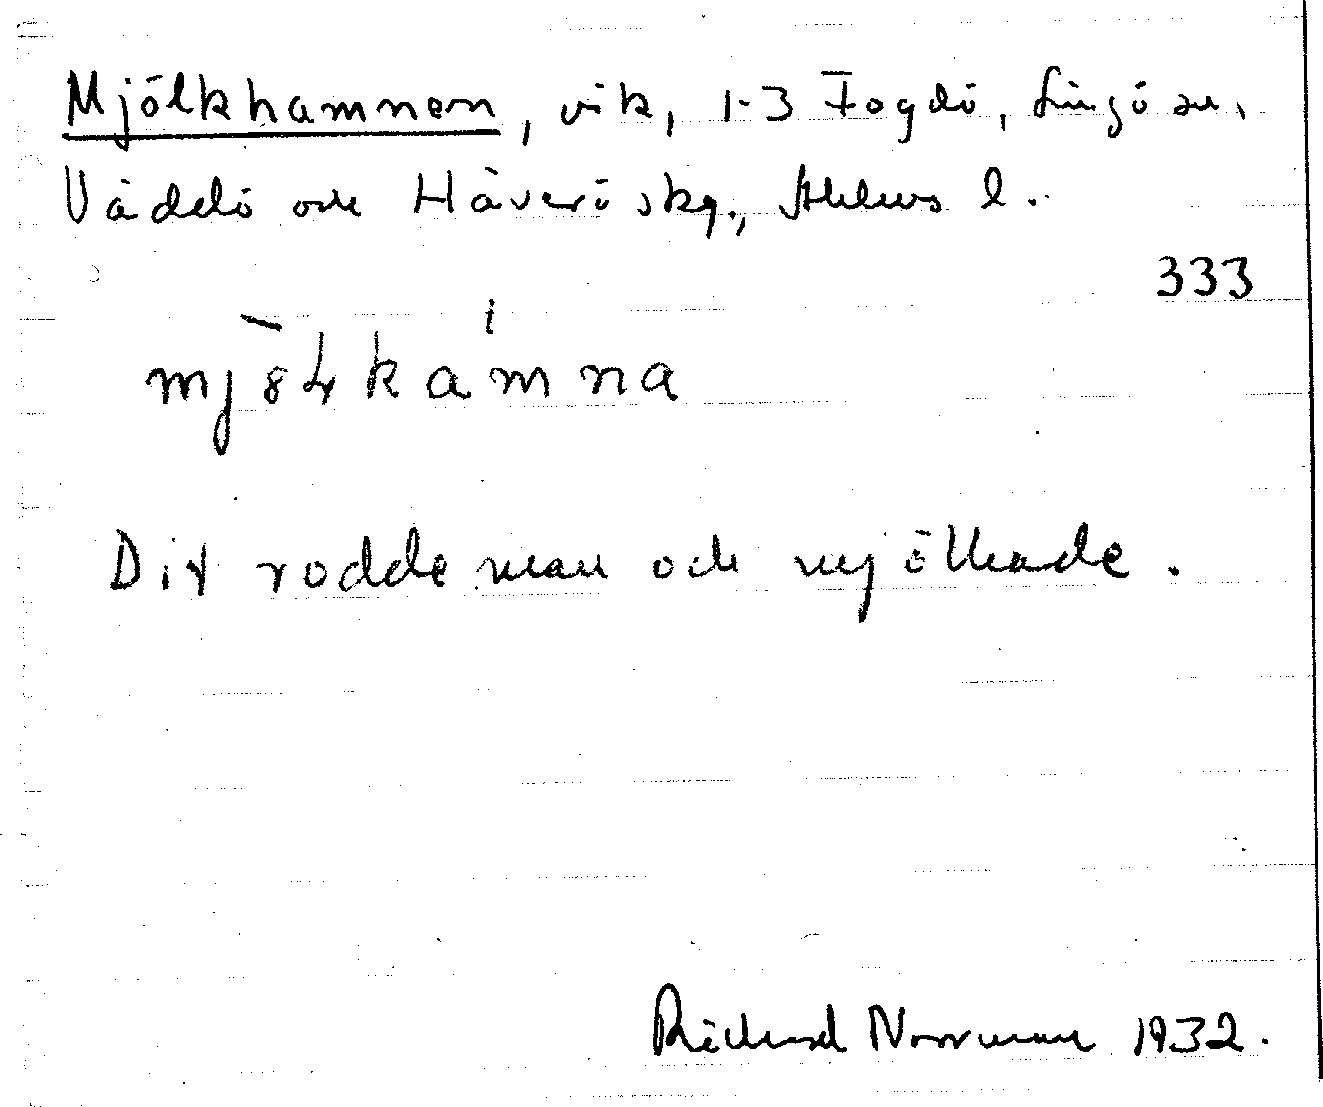 Mjölkhamnen, vik, 1-3 Fogdö, Singö sn,
Väddö och Häverö skg., Sthlms l.
333
mjölkamna
Dit rodde man och mjölkade.
Richard Norrman 1932.